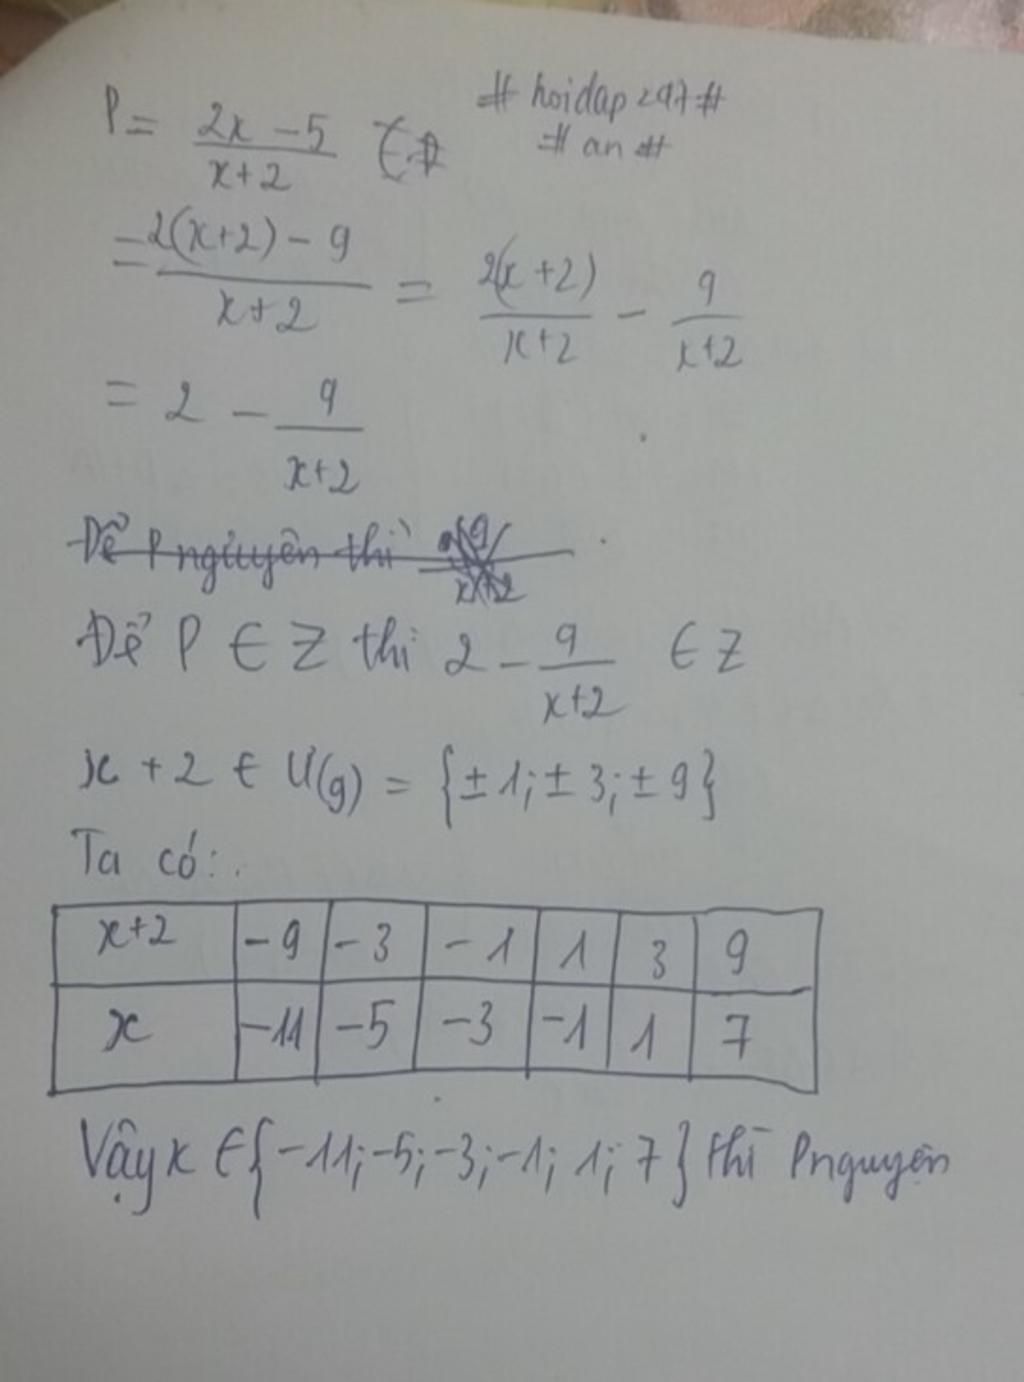 P = (2x - 5)/(x + 2)
# hoidap247 #
# an #
= (2(x+2) - 9)/(x + 2) = 2(x + 2)/(x + 2) - 9/(x+2)
= 2 - 9/(x+2)
Để P nguyên thì
Để P ∈ Z thì 2 - 9/(x+2) ∈ Z
x + 2 ∈ Ư(9) = {±1; ±3; ±9}
Ta có:
x+2 -9 -3 -1 1 3 9
x -11 -5 -3 -1 1 7
Vậy x ∈ {-11; -5; -3; -1; 1; 7} thì P nguyên